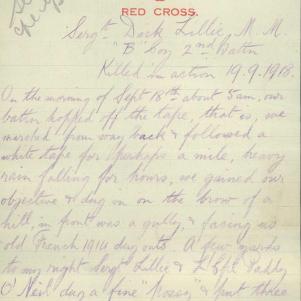 RED CROSS.
Sergt Dock Lillie, M.M.
"B" Coy 2nd Battn
Killed in action 19.9.1918.
On the morning of Sept 18th about 5am, our
battn hopped off the tape, that is, we
marched from way back & followed a
white tape for perhaps a mile, heavy
rain falling for hours, we gained our
objective & dug in on the brow of a
hill, in front was a gully, & facing us
old French 1914 dug outs. A few yards
to my right Sergt Lillie & L/Cpl Paddy
O'Neil dug a fine "possy" & just three